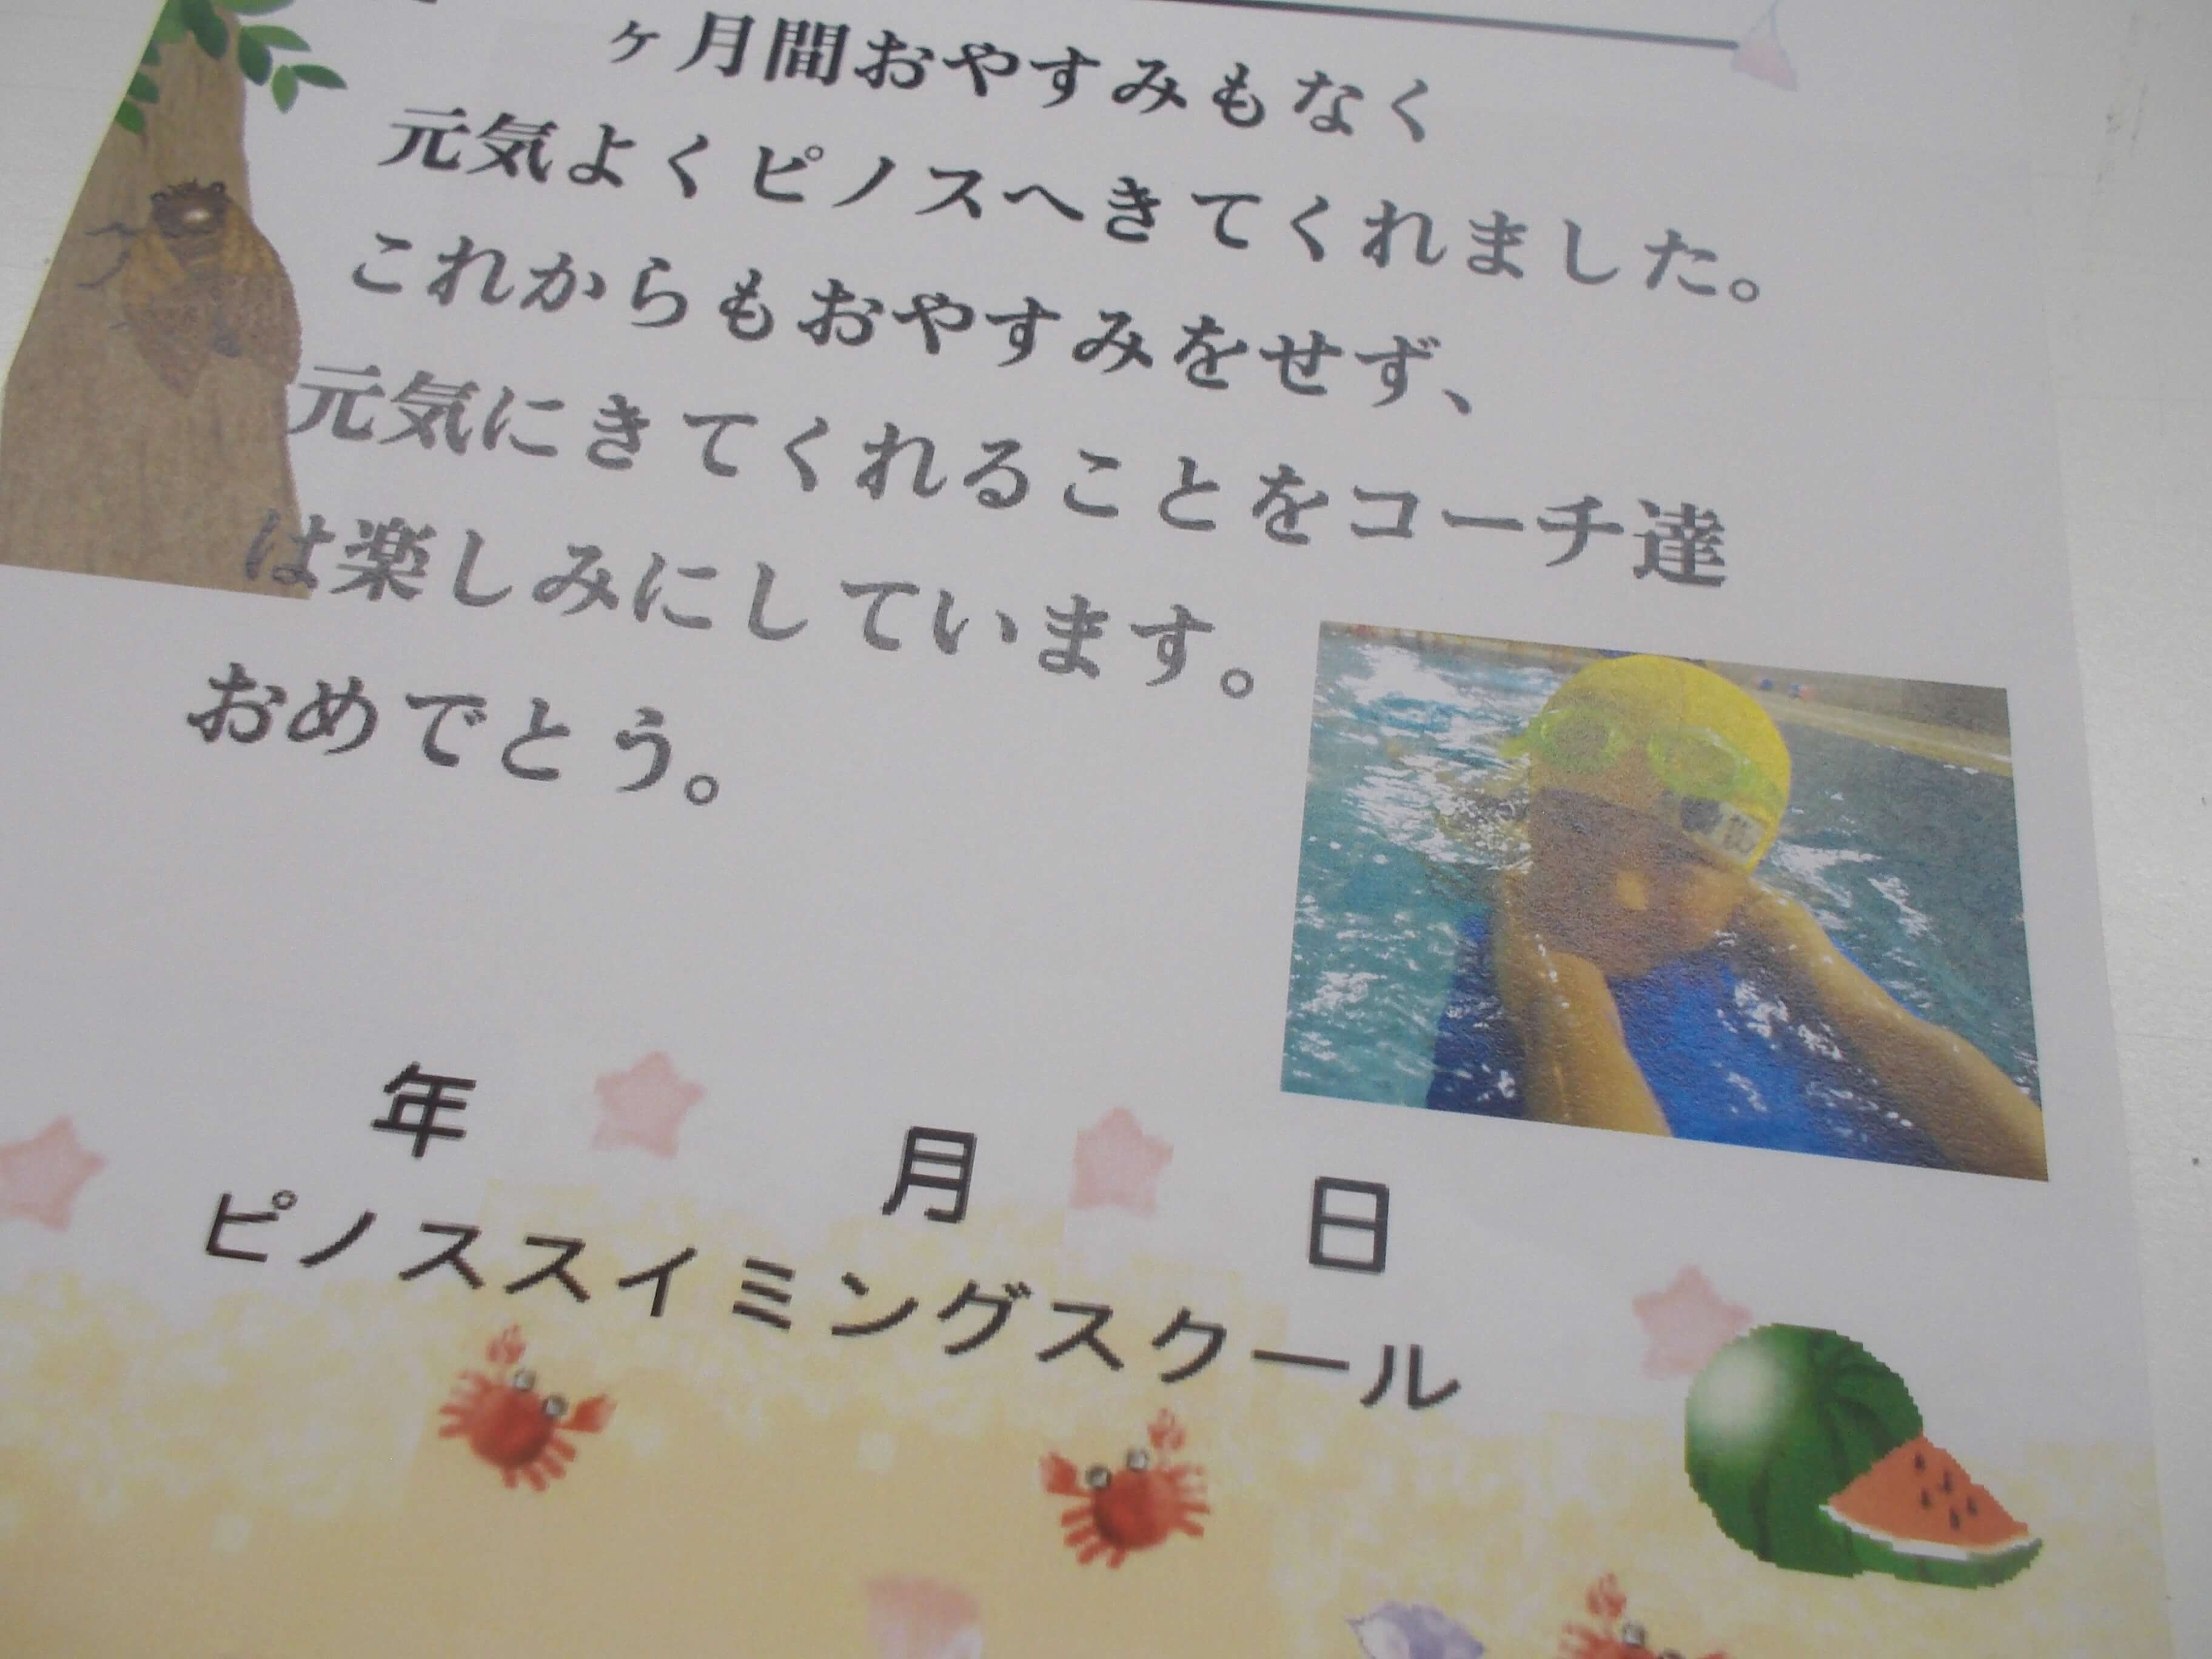 ヶ月間おやすみもなく
元気よくピノスへきてくれました。
これからもおやすみをせず、
元気にきてくれることをコーチ達
は楽しみにしています。
おめでとう。
年 月 日
ピノススイミングスクール